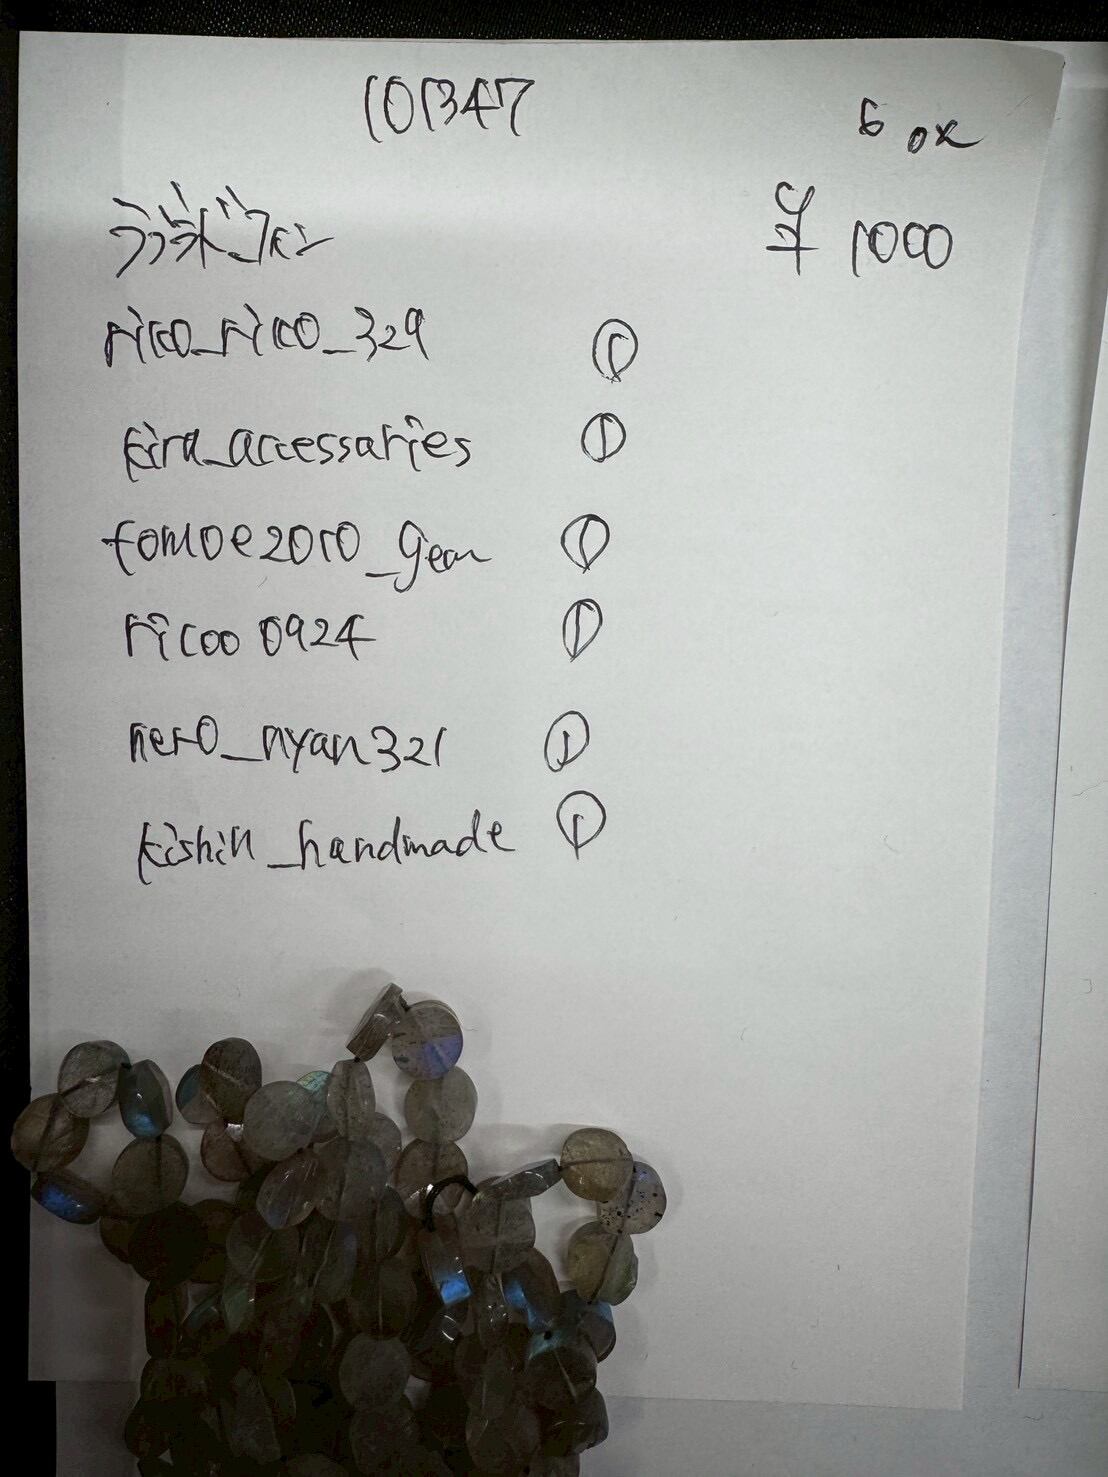 101347
6 ox
ラブラドライト
¥ 1000
rico_rico_329 ①
kira_accessaries ①
tomoe2010_gem ①
ricoo0924 ①
nero_nyan321 ①
kishin_handmade ①